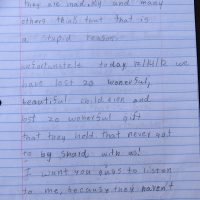 they are inadily and many
others think that that is
a stupid reason.
unfortunatele today 12/14/12 we
have lost 20 wonerful,
beautiful childeren and
lost 20 woberful gift
that they held that never got
to by shard with us!
I want you guys to listen
to me, because they haven't